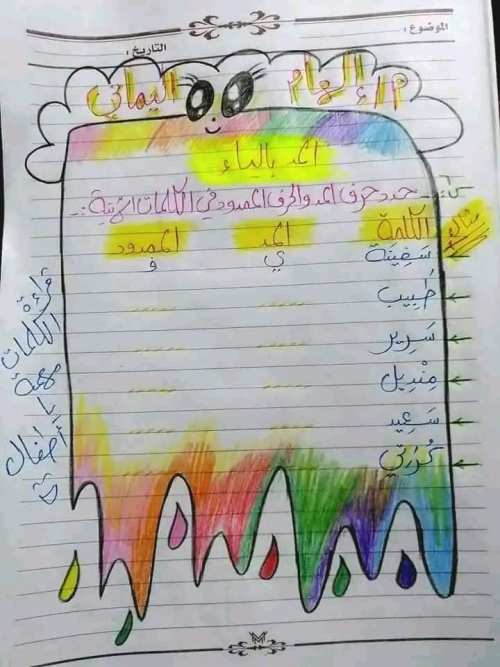 الموضوع :
التاريخ :
إلهام اليماني
المد بالياء
حدد حرف المد والحرف الممدود في الكلمات الآتية :-
مثال الكلمة المد الممدود
سَفِينَة ي ف
طَبِيب
سَرِير
مِنْدِيل
سَعِيد
قراءة الكلمات مهمة يا أطفال